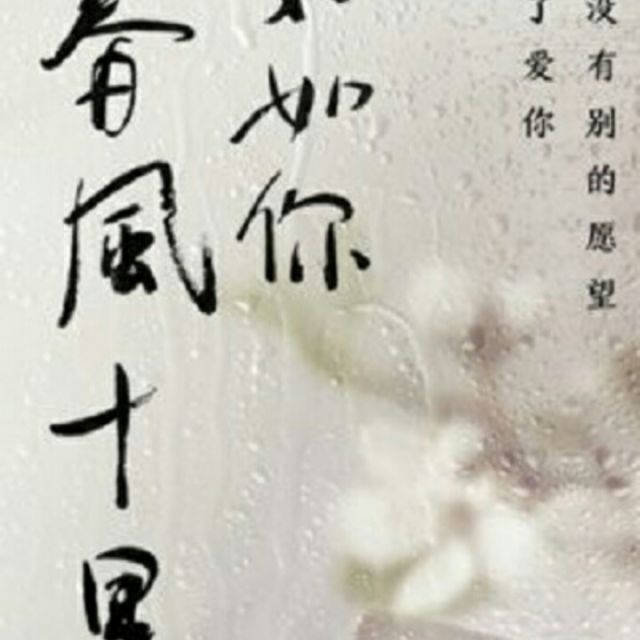 没有别的愿望
了爱你
如你
春風十里